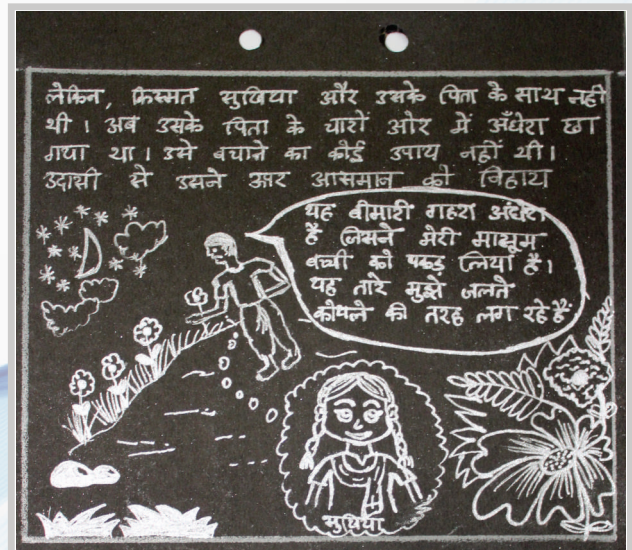 लेकिन, किस्मत सुखिया और उसके पिता के साथ नही
थी। अब उसके पिता के चारों ओर में अँधेरा छा
गया था। उसे बचाने का कोई उपाय नहीं थी।
उदासी से उसने ऊपर आसमान को निहाय
यह बीमारी गहरा अंधेरा
है जिसने मेरी मासूम
बच्ची को पकड़ लिया है।
यह तारे मुझे जलते
कोयले की तरह लग रहे हैं
सुखिया